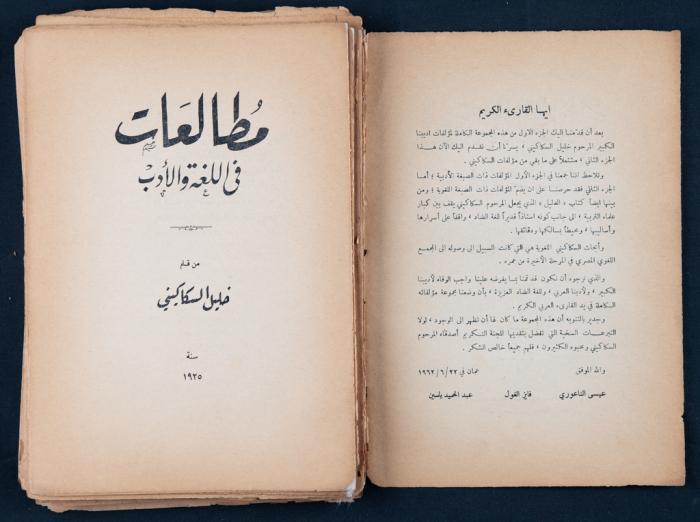 ايها القارىء الكريم
بعد أن قدمنا اليك الجزء الاول من هذه المجموعة الكاملة لمؤلفات اديبنا
الكبير المرحوم خليل السكاكيني ، يسرنا أن نقدم اليك الآن هذا
الجزء الثاني ، مشتملاً على ما بقي من مؤلفات السكاكيني .
وتلاحظ اننا جمعنا في الجزء الاول المؤلفات ذات الصبغة الأدبية ؛ أما
الجزء الثاني فقد حرصنا على ان يضم المؤلفات ذات الصبغة اللغوية ؛ ومن
بينها ايضاً كتاب « الدليل » الذي يجعل المرحوم السكاكيني يقف بين كبار
علماء التربية ، الى جانب كونه استاذاً قديراً للغة الضاد ، واقفاً على أسرارها
وأساليبها ، ومحيطاً بمسالكها ودقائقها .
وأبحاث السكاكيني اللغوية هي التي كانت السبيل الى وصوله الى المجمع
اللغوي المصري في المرحلة الأخيرة من عمره .
والذي نرجوه أن نكون قد قمنا بما يفرضه علينا واجب الوفاء لأديبنا
الكبير ، ولأدبنا العربي ، وللغة الضاد العزيزة ، بأن وضعنا مجموعة مؤلفاته
الكاملة في يد القارىء العربي الكريم .
وجدير بالتنويه أن هذه المجموعة ما كان لها أن تظهر الى الوجود ، لولا
التبرعات السخية التي تفضل بتقديمها للجنة التكريم أصدقاء المرحوم
السكاكيني ومحبوه الكثيرون ، فلهم جميعاً خالص الشكر .
والله الموفق عمان في ٢٢/٦/١٩٦٢
عيسى الناعوري فايز الغول عبد الحميد ياسين
مُطالعَات
في اللغة والأدب
من قلم
خليل السكاكيني
سنة
١٩٢٥